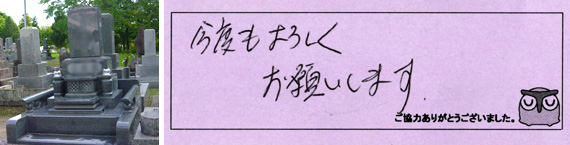 今度もよろしく
お願いします。
ご協力ありがとうございました。